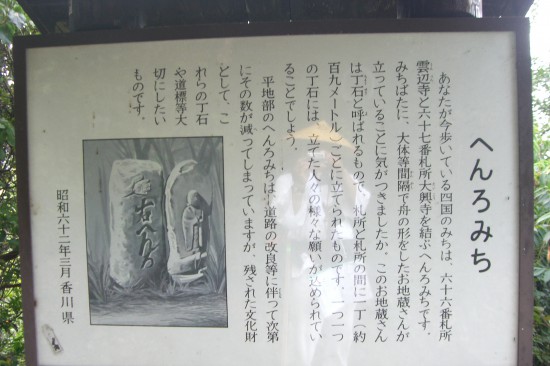 へんろみち
あなたが今歩いている四国のみちは、六十六番札所
雲辺寺と六十七番札所大興寺を結ぶへんろみちです。
みちばたに、大体等間隔で舟の形をしたお地蔵さんが
立っていることに気がつきましたか。このお地蔵さん
は丁石と呼ばれるもので、札所と札所の間に一丁(約
百九メートル)ごとに立てられたものです。一つ一つ
の丁石には、立てた人々の様々な願いが込められてい
ることでしょう。
平地部のへんろみちは、道路の改良等に伴って次第
にその数が減ってしまっていますが、残された文化財
として、こ
れらの丁石
や道標等大
切にしたい
ものです。
昭和六十二年三月 香川県